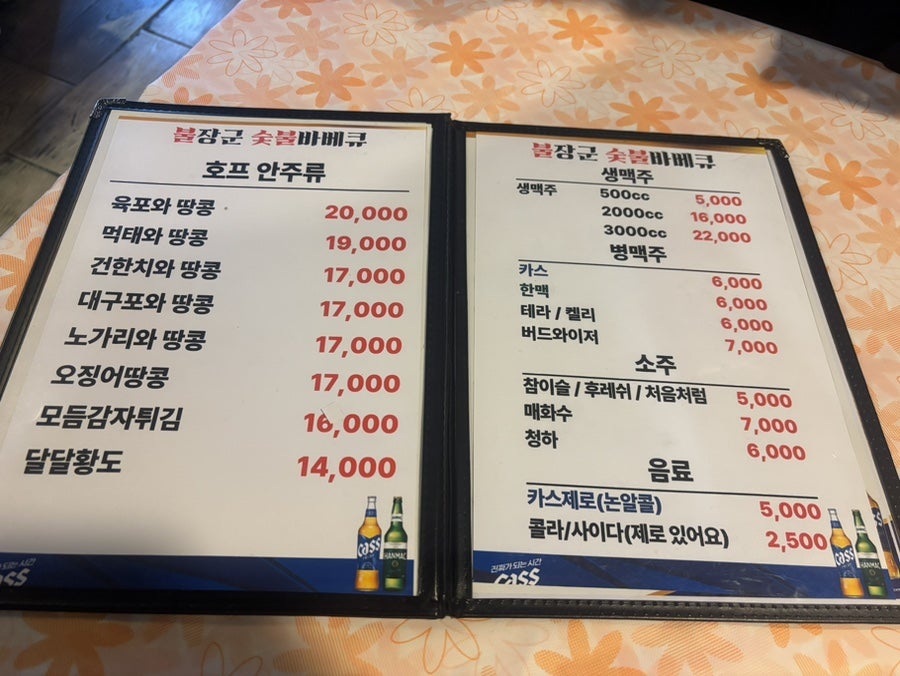 불장군 숯불바베큐
호프 안주류
육포와 땅콩 20,000
먹태와 땅콩 19,000
건한치와 땅콩 17,000
대구포와 땅콩 17,000
노가리와 땅콩 17,000
오징어땅콩 17,000
모듬감자튀김 16,000
달달황도 14,000
cass
HANMAC
되는 시간
cass
불장군 숯불바베큐
생맥주
생맥주 500cc 5,000
2000cc 16,000
3000cc 22,000
병맥주
카스 6,000
한맥 6,000
테라 / 켈리 6,000
버드와이저 7,000
소주
참이슬 / 후레쉬 / 처음처럼 5,000
매화수 7,000
청하 6,000
음료
카스제로(논알콜) 5,000
콜라/사이다(제로 있어요) 2,500
진짜가 되는 시간
cass
cass
HANMAC